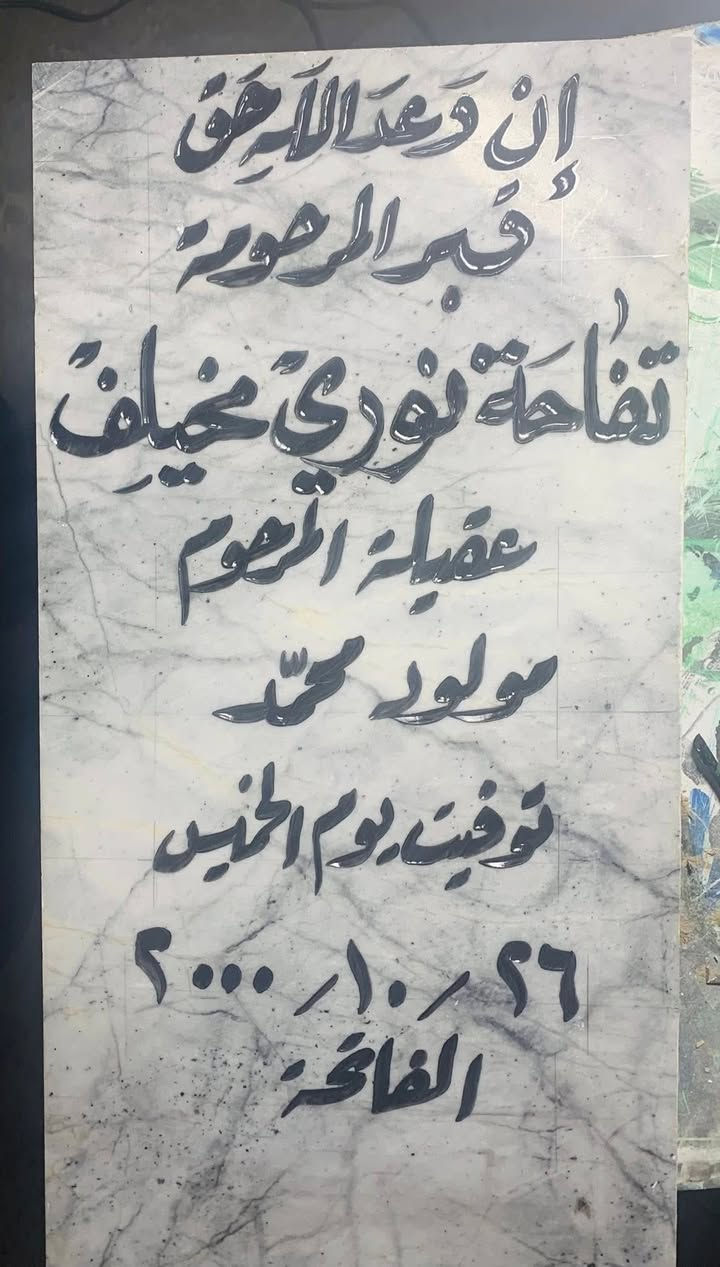 إنْ وَعدَ اللّهِ حَقَ
قبر المرحومة
تفاحَة نوري مخيلِف
عقيلة المرحوم
مولود محمّد
توفيت يوم الخميس
٢٦ / ١٠ / ٢٠٠٠
الفاتحة